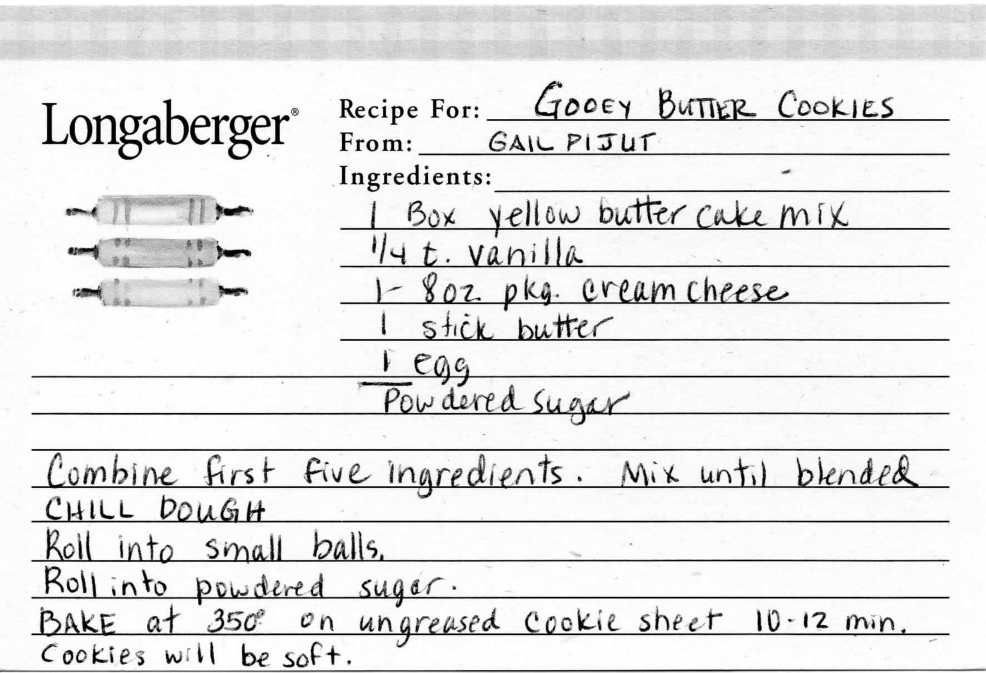 Longaberger®
Recipe For: GOOEY BUTTER COOKIES
From: GAIL PIJUT
Ingredients:
1 Box yellow butter cake mix
1/4 t. vanilla
1- 8oz. pkg. cream cheese
1 stick butter
1 egg
Powdered sugar
Combine first five ingredients. Mix until blended
CHILL DOUGH
Roll into small balls.
Roll into powdered sugar.
BAKE at 350° on ungreased cookie sheet 10-12 min.
Cookies will be soft.